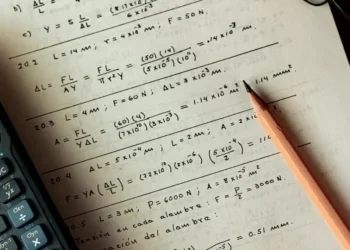 b) Y = 5 L/ΔL =
20.2 L = 14 m ; r = 4×10⁻³ m ; F = 50 N.
ΔL = FL/AY = FL/πr²Y = (50)(14)/(5×10⁻⁵)(10¹¹) = .14×10⁻³ m.
20.3 L = 4 m ; F = 60 N ; ΔL = 3×10⁻³ m.
A = FL/YΔL = (60)(4)/(7×10¹⁰)(3×10⁻³) = 1.14×10⁻⁶ m² = 1.14 mm².
20.4 ΔL = 5×10⁻⁴ m ; L = 2 m ; A = 2×10
F = YA(ΔL/L) = (22×10¹⁰)(2×10⁻⁶)(5×10⁻⁴/2) = 11
0.5 L = 3 m ; P = 6000 N ; A = 8×10⁻⁵ m²
en cada alambre : F = P/2 = 3000 N.
del alambre :
= 0.51 mm.